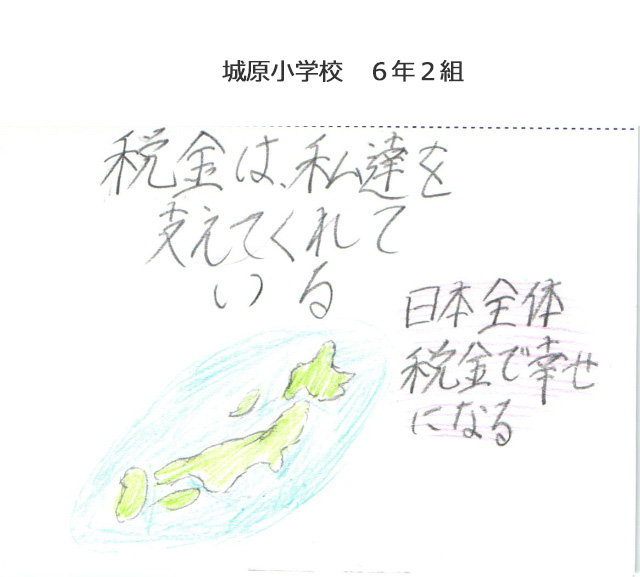 城原小学校　６年２組
税金は、私達を
支えてくれて
いる
日本全体
税金で幸せ
になる